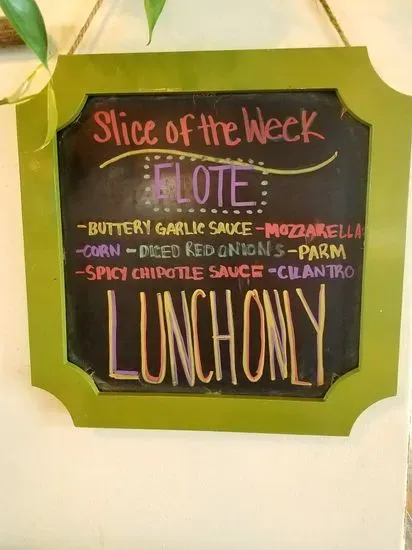 Slice of the Week
ELOTE
-BUTTERY GARLIC SAUCE -MOZZARELLA
-CORN -DICED RED ONIONS -PARM
-SPICY CHIPOTLE SAUCE -CILANTRO
LUNCH ONLY